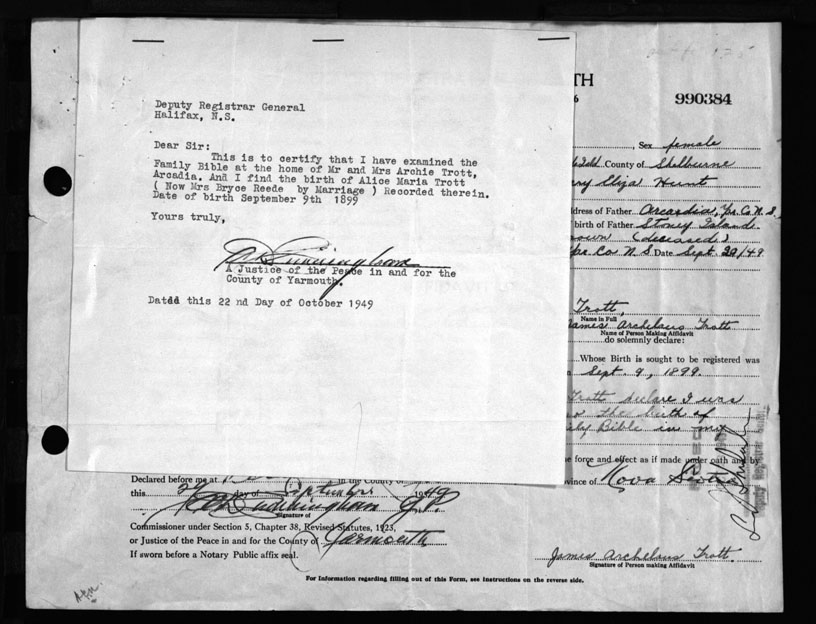 Deputy Registrar General
Halifax, N.S.
Dear Sir:
This is to certify that I have examined the
Family Bible at the home of Mr and Mrs Archie Trott,
Arcadia. And I find the birth of Alice Maria Trott
( Now Mrs Bryce Reede by Marriage ) Recorded therein.
Date of birth September 9th 1899
Yours truly,
A Justice of the Peace in and for the
County of Yarmouth.
Datdd this 22 nd Day of October 1949
TH
6
990384
Sex female
County of Shelburne
Eliza Hunt
ddress of Father Arcadia, Yar. Co N.S.
birth of Father Stoney Island
(deceased)
Yar. Co N.S. Date Sept. 29/49
Trott,
Name in Full
James Archelaus Trott
Name of Person Making Affidavit
do solemnly declare:
Whose Birth is sought to be registered was
n Sept. 9, 1899.
Trott declare I was
the birth of
Bible in my
e force and effect as if made under oath and by
vince of Nova Scotia
Declared before me at
in the County of
this 29 day of September 1949
Cunningham J.P.
Signature of
Commissioner under Section 5, Chapter 38, Revised Statutes, 1923,
or Justice of the Peace in and for the County of Yarmouth
If sworn before a Notary Public affix seal.
James Archelaus Trott.
Signature of Person making Affidavit
For Information regarding filling out of this Form, see instructions on the reverse side.